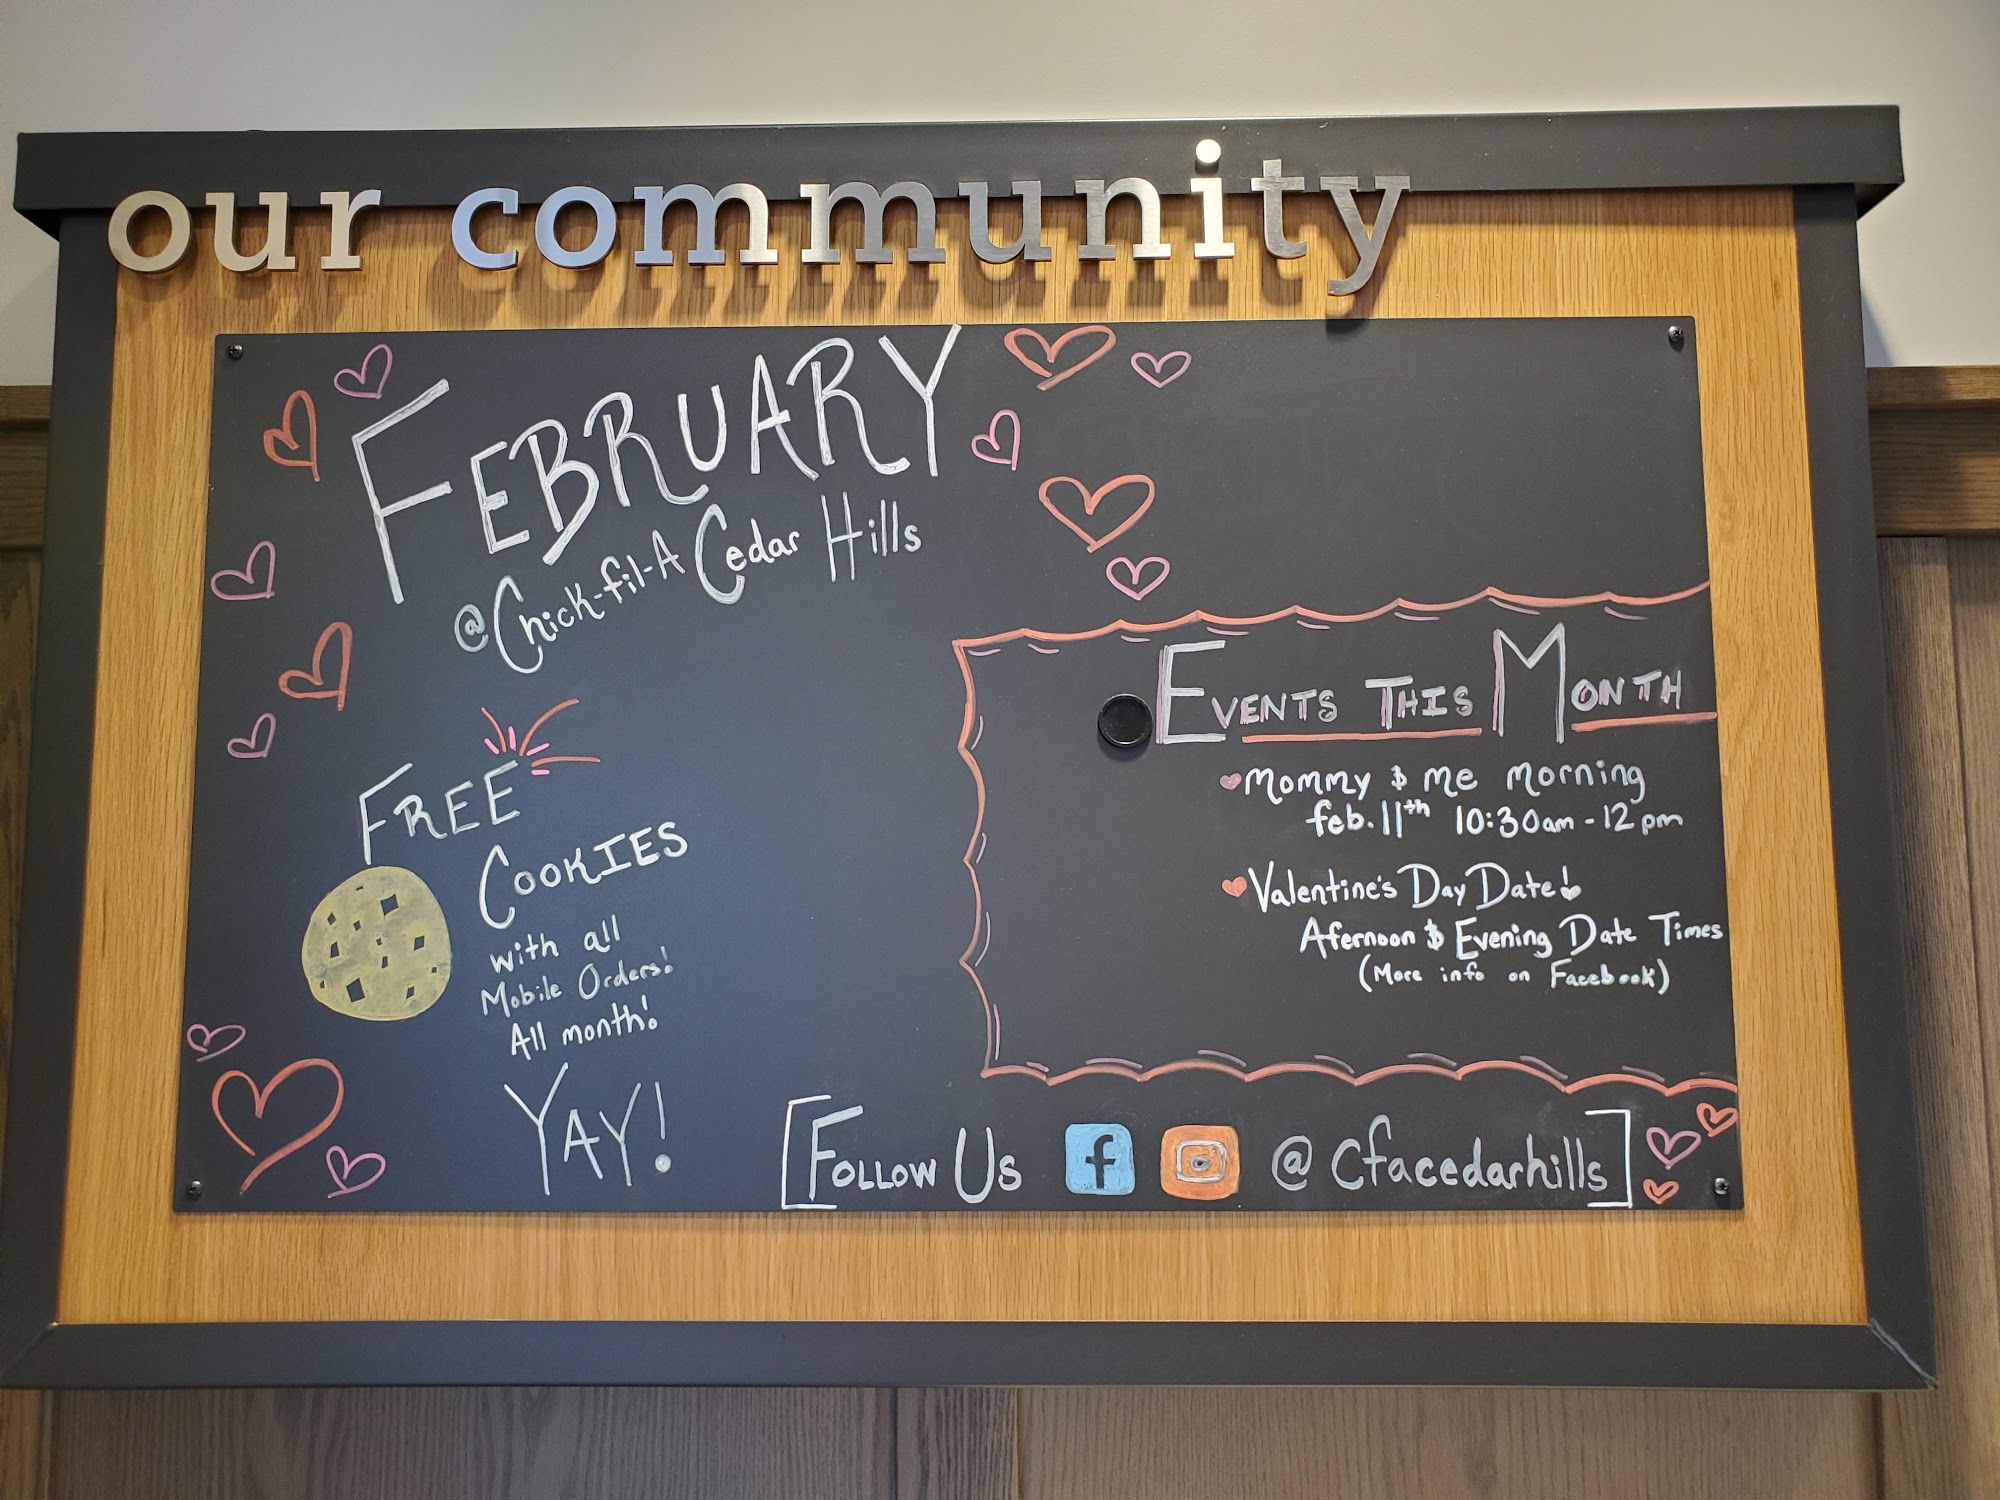 our community
FEBRUARY
@Chick-fil-A Cedar Hills
FREE
COOKIES
with all
Mobile Orders!
All month!
YAY!
EVENTS THIS MONTH
Mommy & Me Morning
feb. 11th 10:30am - 12pm
Valentine's Day Date!
Afernoon & Evening Date Times
(More info on Facebook)
[FOLLOW US f @cfacedarhills]